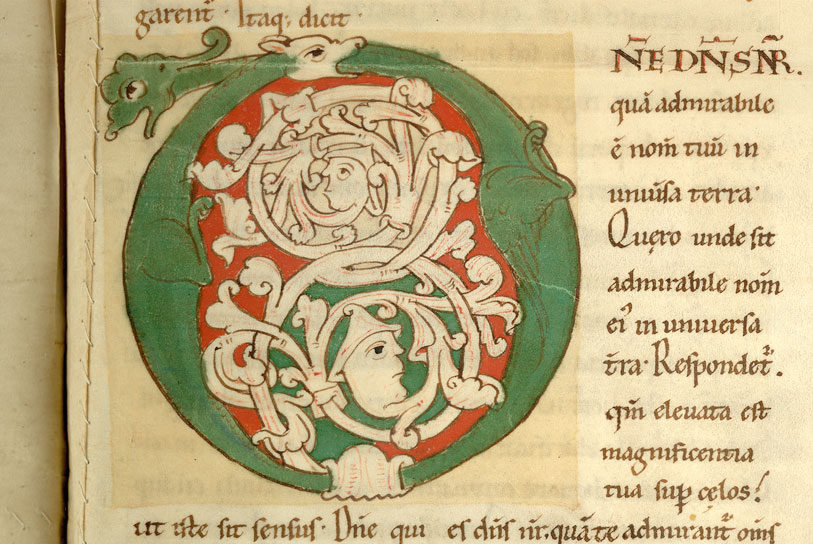 garent᷑. Itaq; dicit
N̄E DN̄S NR̄.
quā admirabile
ē nom̄ tuū in
uniũsa terra.
Quęro unde sit
admirabile nom̄
ei᷒ in uniuersa
t̄ra. Respondet᷑.
qm̄ eleuata est
magnificentia
tua sup̄ cęlos!
ut iste sit sensus. Dn̄e qui es dn̄s nr̄. quā te admirant᷑ om̄s